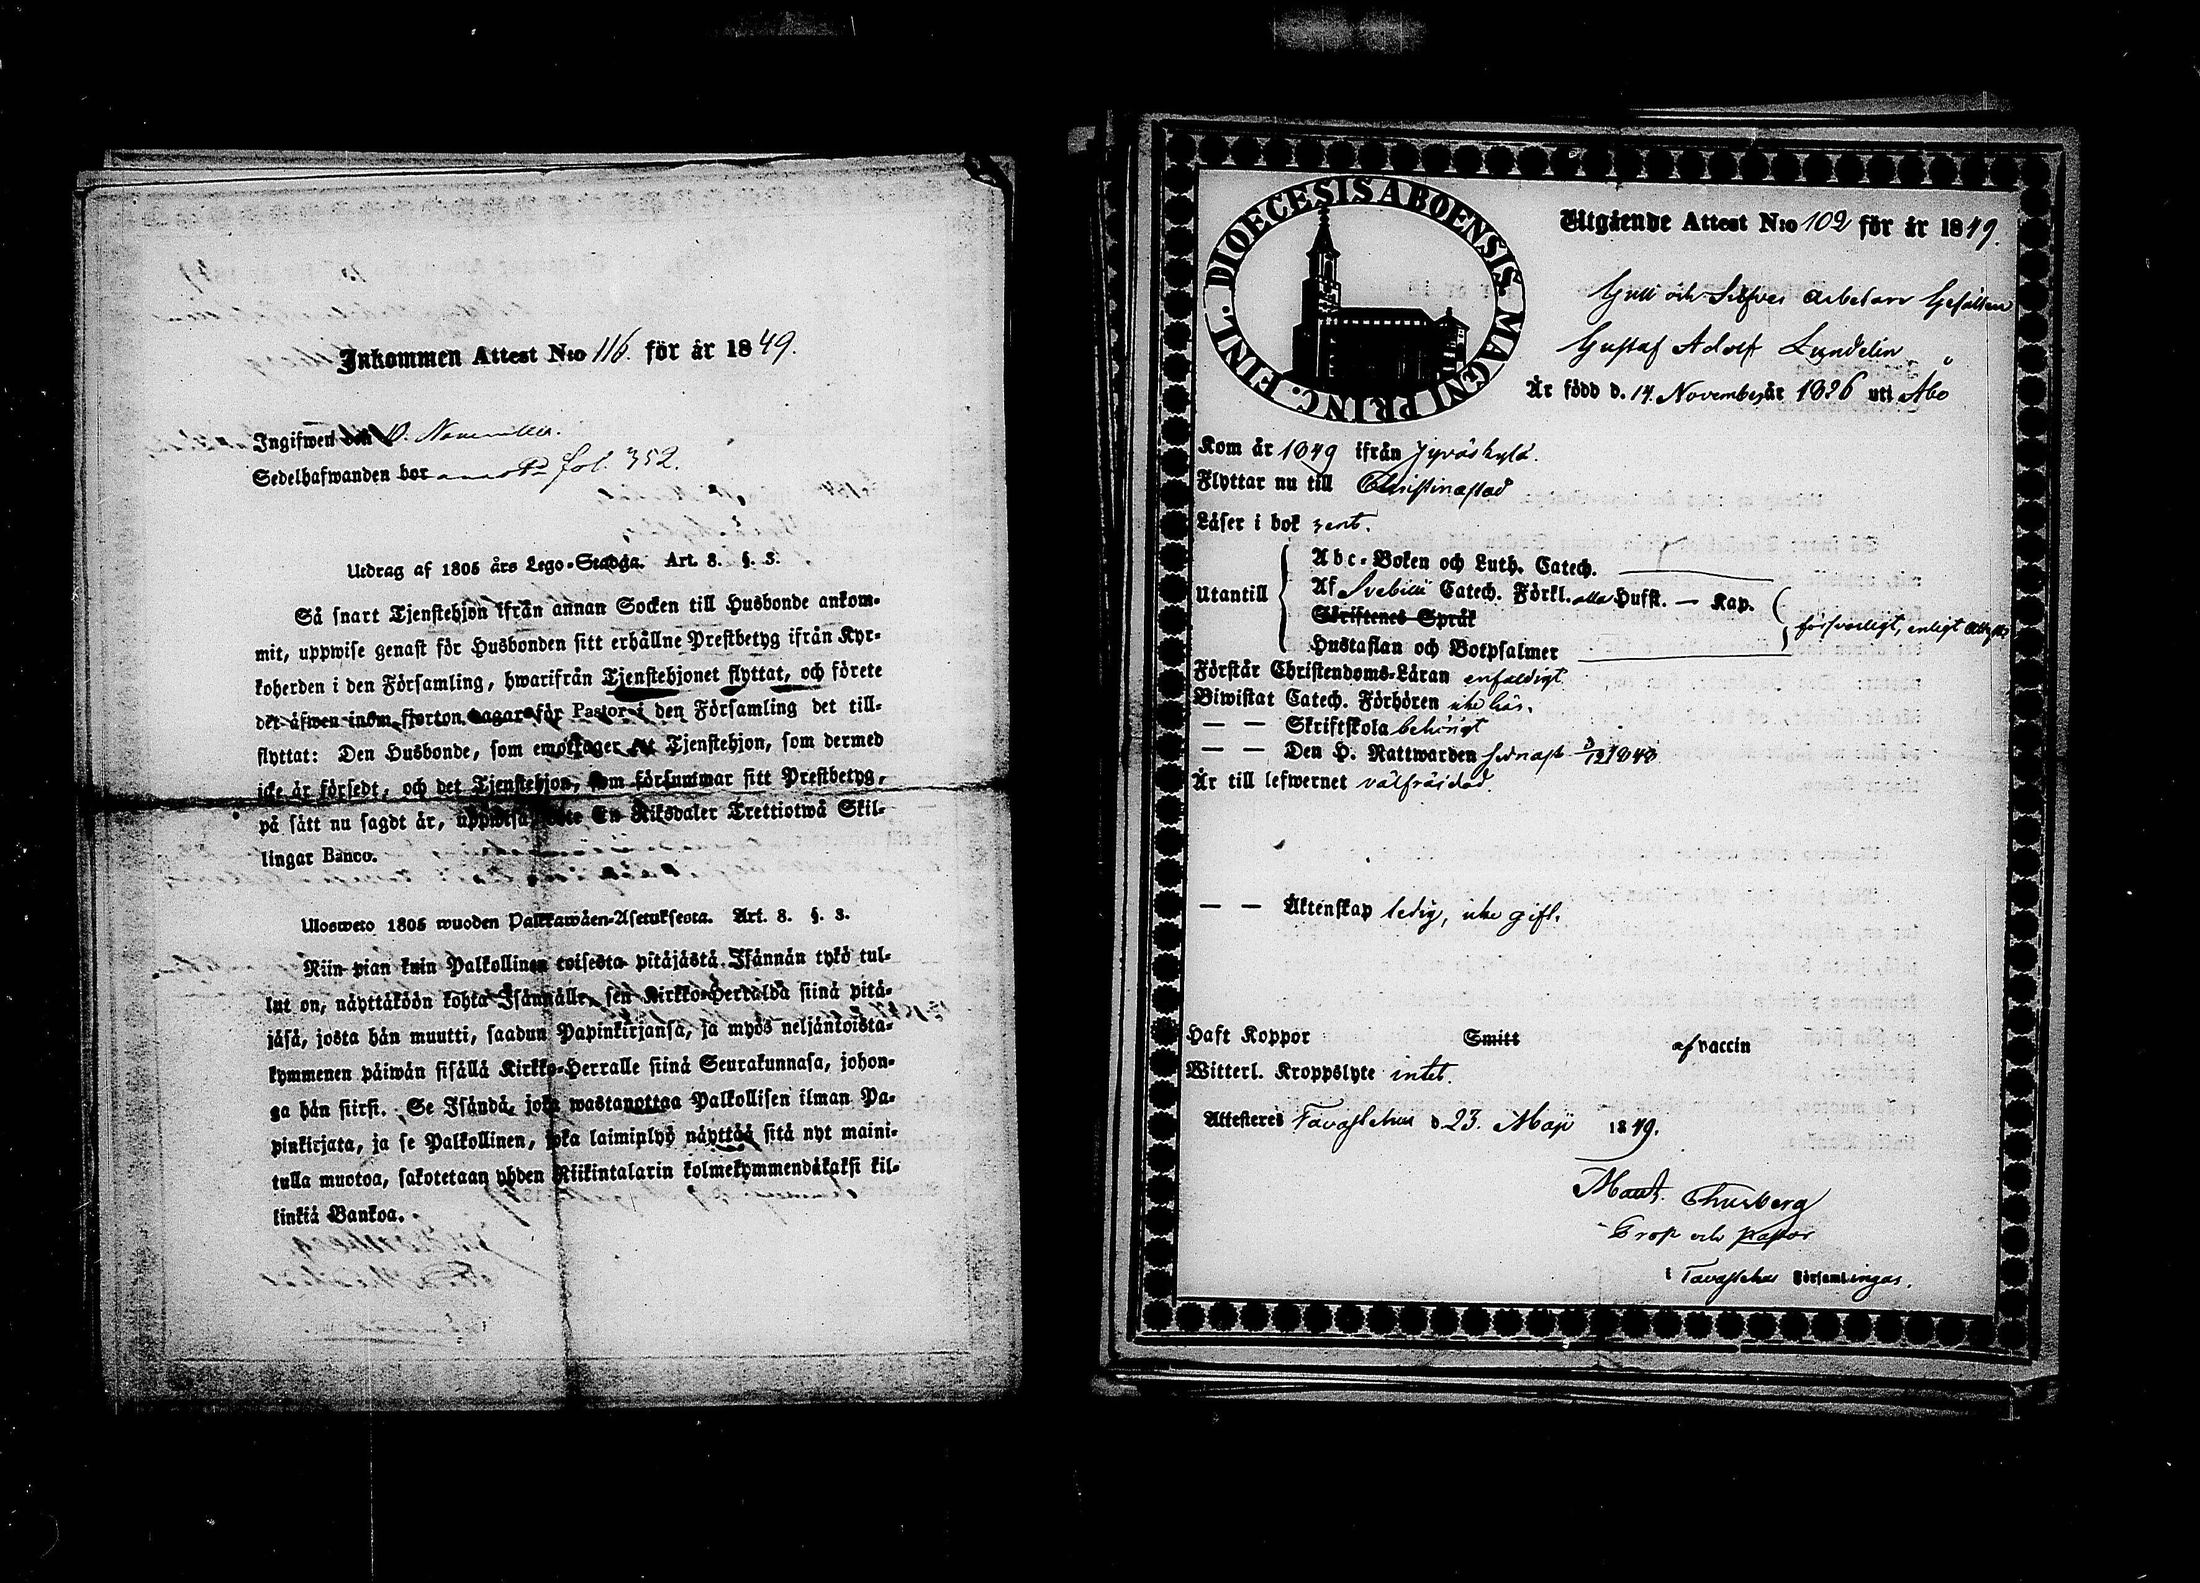 Inkommen Attest N:o 116. för år 1849.
Ingifwen den 8. November.
Sedelhafwanden bor fol. 352.
Utdrag af 1805 års Lego-Stadga. Art. 8. §. 3.
Så snart Tjenstehjon ifrån annan Socken till Husbonde ankom-
mit, uppwise genast för Husbonden sitt erhållne Prestbetyg ifrån Kyr-
koherden i den Församling, hwarifrån Tjenstehjonet flyttat, och förete
det äfwen inom fjorton dagar för Pastor i den Församling det till-
flyttat: Den Husbonde, som emottager ett Tjenstehjon, som dermed
icke är försedt, och det Tjenstehjon, som försummar sitt Prestbetyg,
på sätt nu sagdt är, uppwisa, böte En Riksdaler Trettiotwå Skil-
lingar Banco.
Ulosweto 1805 wuoden Palkkawäen-Asetuksesta. Art. 8. §. 3.
Niin pian kuin Palkollinen toisesta pitäjästä Isännän tykö tul-
lut on, näyttäköön kohta Isännälle, sen Kirkko-Herralda siinä pitä-
jäsä, josta hän muutti, saadun Papinkirjansa, ja myös neljäntoista-
kymmenen päiwän sisällä Kirkko-Herralle siinä Seurakunnasa, johon-
ga hän siirsi. Se Isändä, joka wastanottaa Palkollisen ilman Pa-
pinkirjata, ja se Palkollinen, joka laimiplyö näyttää sitä nyt maini-
tulla muotoa, sakotetaan yhden Riikintalarin kolmekymmendäkaksi kil-
linkiä Bankoa.
FINL. DIOECESIS ABOENSIS. MAGNI PRINC.
Utgående Attest N:o 102 för år 1849.
Gull och Silfver arbetare Gesällen
Gustaf Adolf Lundelin
Är född d. 14. November år 1826 uti Åbo
Kom år 1849 ifrån Jyväskylä.
Flyttar nu till Christinæstad
Läser i bok rent.
Utantill
Abc-Boken och Luth. Catech.
Af Svebilii Catech. Förkl. alla Hufst. — Kap.
Skriftenes Språk
försvarligt, enligt
Hustaflan och Botpsalmer
Förstår Christendoms-Läran enfaldigt.
Biwistat Catech. Förhören icke här.
— — Skriftskola behörigt
— — Den H. Nattwarden sednast 3/12 1848
Är till lefwernet välfräjdad.
— — Äktenskap ledig, icke gift.
Haft Koppor Smitt af vaccin
Witterl. Kroppslyte intet.
Attesteres Tavastehus d. 23. Maji 1849.
Maur. Thurberg
Prost och Pastor
i Tavastehus Församlingar.